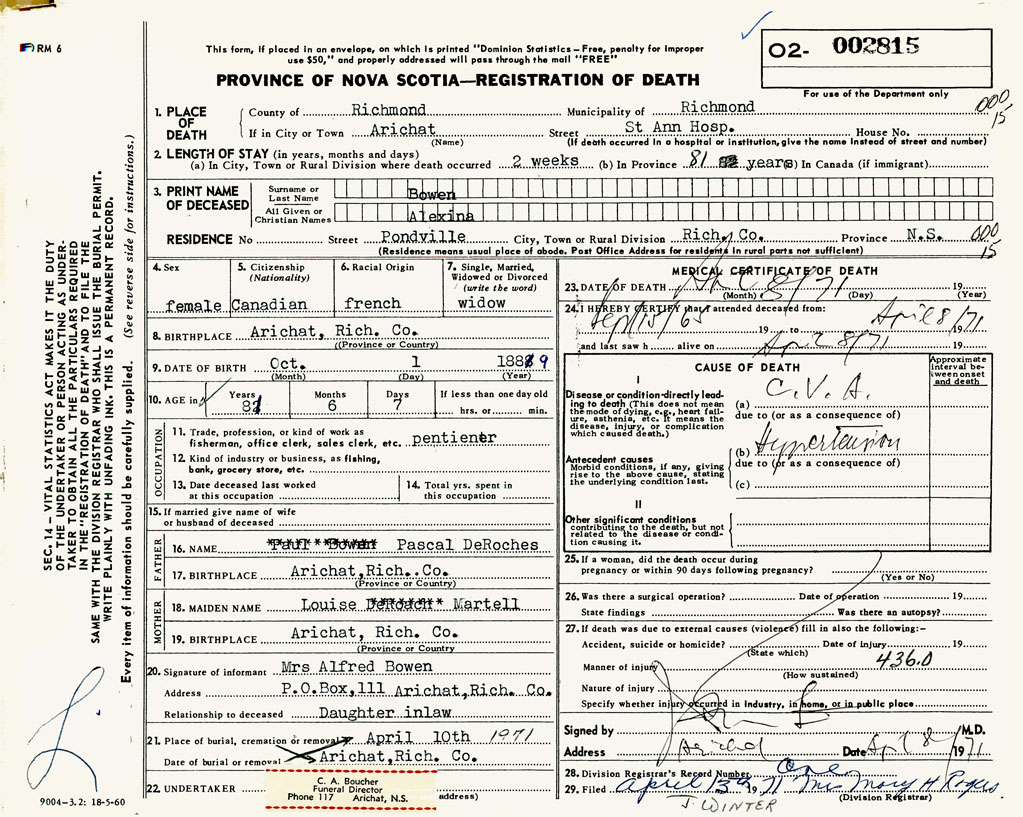 RM 6
This form, if placed in an envelope, on which is printed "Dominion Statistics – Free, penalty for improper
use $50," and properly addressed will pass through the mail "FREE"
PROVINCE OF NOVA SCOTIA—REGISTRATION OF DEATH
O2- 002815
For use of the Department only
SEC. 14 – VITAL STATISTICS ACT MAKES IT THE DUTY
OF THE UNDERTAKER OR PERSON ACTING AS UNDER-
TAKER TO OBTAIN ALL THE PARTICULARS REQUIRED
IN THE "REGISTRATION OF DEATH" AND TO FILE THE
SAME WITH THE DIVISION REGISTRAR WHO SHALL ISSUE THE BURIAL PERMIT.
WRITE PLAINLY WITH UNFADING INK. THIS IS A PERMANENT RECORD.
Every item of information should be carefully supplied. (See reverse side for instructions.)
1. PLACE OF DEATH
County of Richmond Municipality of Richmond
000 15
If in City or Town Arichat Street St Ann Hosp. House No.
(Name) (If death occurred in a hospital or institution, give the name instead of street and number)
2. LENGTH OF STAY (in years, months and days)
(a) In City, Town or Rural Division where death occurred 2 weeks (b) In Province 81 years) In Canada (if immigrant)
3. PRINT NAME OF DECEASED
Surname or Last Name Bowen
All Given or Christian Names Alexina
RESIDENCE No Street Pondville City, Town or Rural Division Rich. Co. Province N.S. 000 15
(Residence means usual place of abode. Post Office Address for residents in rural parts not sufficient)
4. Sex
female
5. Citizenship (Nationality)
Canadian
6. Racial Origin
french
7. Single, Married, Widowed or Divorced (write the word)
widow
8. BIRTHPLACE Arichat, Rich. Co.
(Province or Country)
9. DATE OF BIRTH Oct. 1 1889
(Month) (Day) (Year)
10. AGE in Years Months Days If less than one day old
81 6 7 hrs. or min.
OCCUPATION
11. Trade, profession, or kind of work as
fisherman, office clerk, sales clerk, etc. pentiener
12. Kind of industry or business, as fishing,
bank, grocery store, etc.
13. Date deceased last worked
at this occupation
14. Total yrs. spent in
this occupation
15. If married give name of wife
or husband of deceased
FATHER
16. NAME Pascal DeRoches
17. BIRTHPLACE Arichat, Rich. Co.
(Province or Country)
MOTHER
18. MAIDEN NAME Louise Martell
19. BIRTHPLACE Arichat, Rich. Co.
(Province or Country
20. Signature of informant Mrs Alfred Bowen
Address P.O.Box,111 Arichat,Rich. Co.
Relationship to deceased Daughter inlaw
21. Place of burial, cremation or removal April 10th 1971
Date of burial or removal Arichat,Rich. Co.
22. UNDERTAKER
C. A. Boucher
Funeral Director
Phone 117 Arichat, N.S.
address)
9004–3.2: 18-5-60
MEDICAL CERTIFICATE OF DEATH
23. DATE OF DEATH April 8/71 19
(Month) (Day) (Year)
24. I HEREBY CERTIFY that I attended deceased from:
Sept 15/65 19 to April 8/71 19
and last saw h alive on April 8/71 19
CAUSE OF DEATH
Approximate interval between onset and death
I
Disease or condition directly lead-
ing to death (This does not mean
the mode of dying, e.g., heart fail-
ure, asthenia, etc. It means the
disease, injury, or complication
which caused death.)
(a) C.V.A.
due to (or as a consequence of)
(b) Hypertension
due to (or as a consequence of)
(c)
Antecedent causes
Morbid conditions, if any, giving
rise to the above cause, stating
the underlying condition last.
II
Other significant conditions
contributing to the death, but not
related to the disease or condi-
tion causing it.
25. If a woman, did the death occur during
pregnancy or within 90 days following pregnancy?
(Yes or No)
26. Was there a surgical operation? Date of operation 19
State findings Was there an autopsy?
27. If death was due to external causes (violence) fill in also the following:–
Accident, suicide or homicide? Date of injury 19
(State which)
436.0
Manner of injury
(How sustained)
Nature of injury
Specify whether injury occurred in Industry, in home, or in public place
Signed by M.D.
Address Arichat Date April 8/ 1971
28. Division Registrar's Record Number One
29. Filed April 13th 1971 Mrs Mary H Rogers
(Division Registrar)
J. WINTER